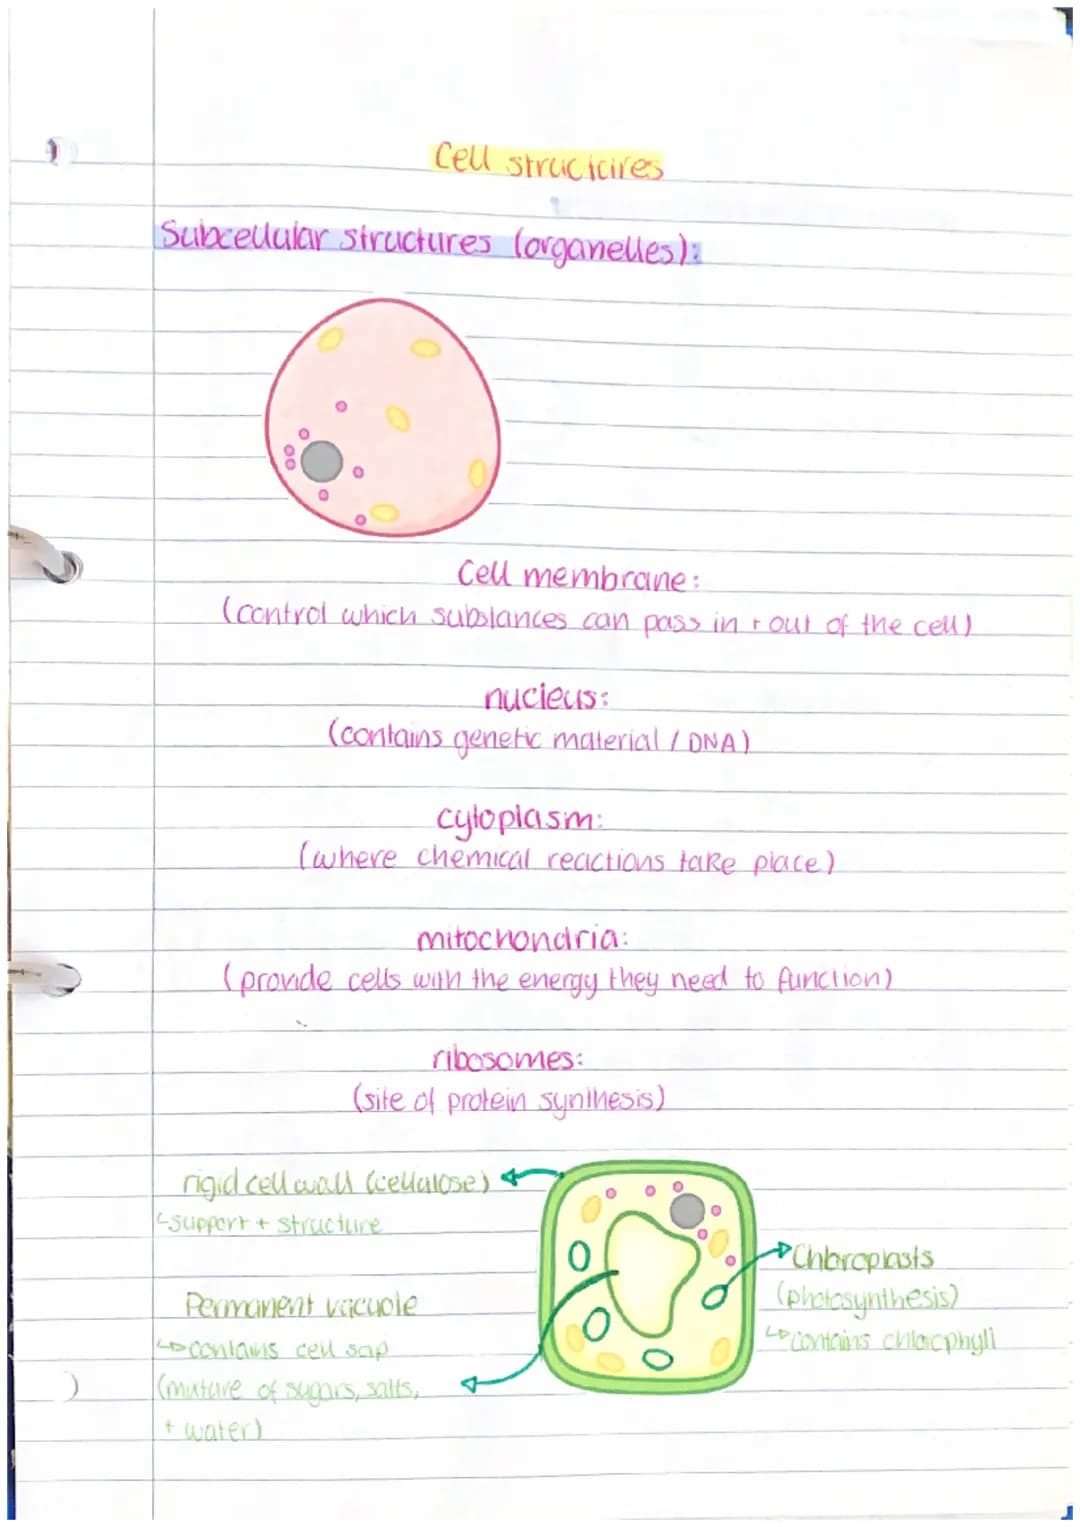 Cell structures
Subcellular structures (organelles):
Cell membrane:
(control which substances can pass in + out of the cell)
nucleus:
(contains genetic material / DNA)
cytoplasm:
(where chemical reactions take place)
mitochondria:
(provide cells with the energy they need to function)
ribosomes:
(site of protein synthesis)
rigid cell wall (cellulose)
↳support + structure
Permanent vacuole
↳contains cell sap
(mixture of sugars, salts,
+ water)
Chloroplasts
(photosynthesis)
↳contains chlorophyll